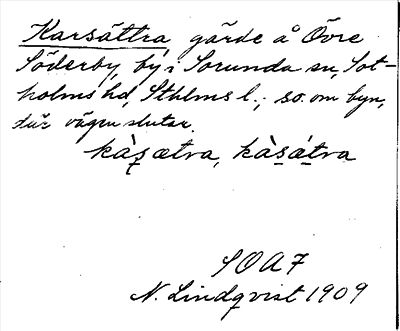 Karsättra gärde å Övre
Söderby, by i Sorunda sn, Sot-
holms hd, Sthlms l.; so. om byn,
där vägen slutar.
kàȿætra, kàs̱át̠ra
SOAF
N. Lindqvist 1909